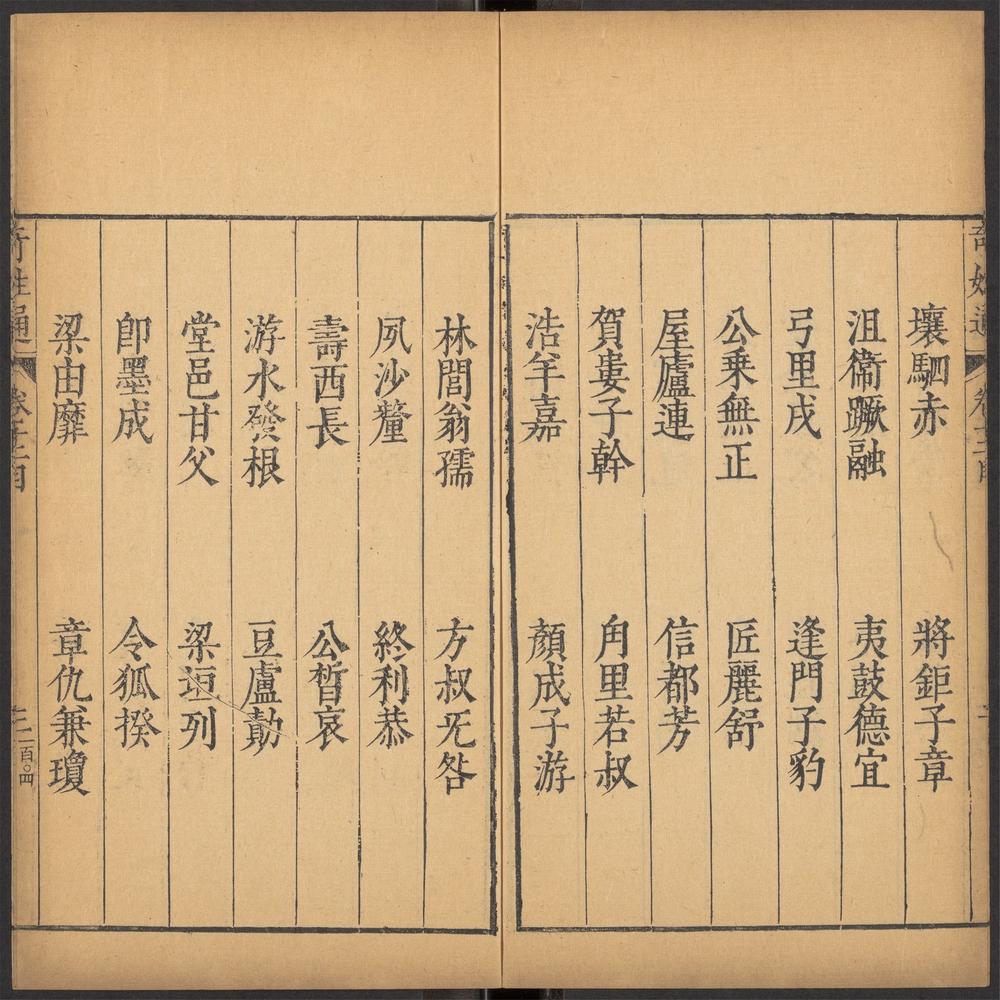 壤駟赤 將鉅子章
沮衞蹶融 夷鼓德宜
弓里戌 逢門子豹
公乗無正 匠麗舒
屋廬連 信都芳
賀婁子幹 甪里若叔
浩羊嘉 顏成子游
林閭翁孺 方叔旡咎
夙沙釐 終利恭
壽西長 公晳哀
游水發根 豆盧勣
堂邑甘父 梁垣列
卽墨成 令狐揆
梁由靡 章仇兼瓊
奇姓通 卷 目 二百〇四